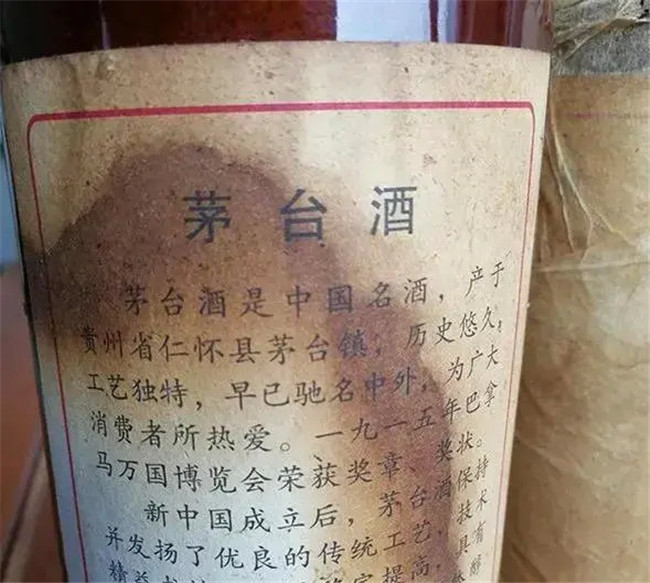 茅台酒
茅台酒是中国名酒，产于
贵州省仁怀县茅台镇，历史悠久，
工艺独特，早已驰名中外，为广大
消费者所热爱。一九一五年巴拿
马万国博览会荣获奖章、奖状。
新中国成立后，茅台酒保持
并发扬了优良的传统工艺，技术
提高，具有
醇